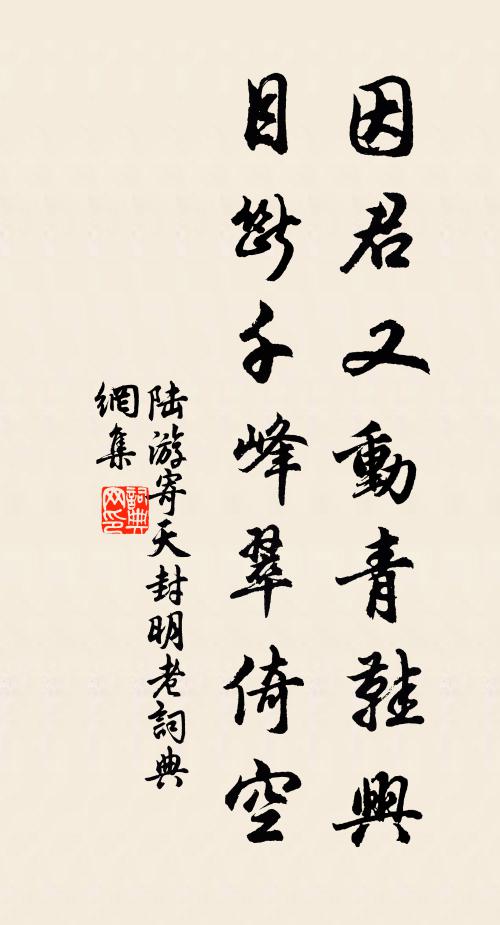 因君又動青鞋興
目斷千峰翠倚空
陆游寄天封明老詞典
網集
詞典
网印